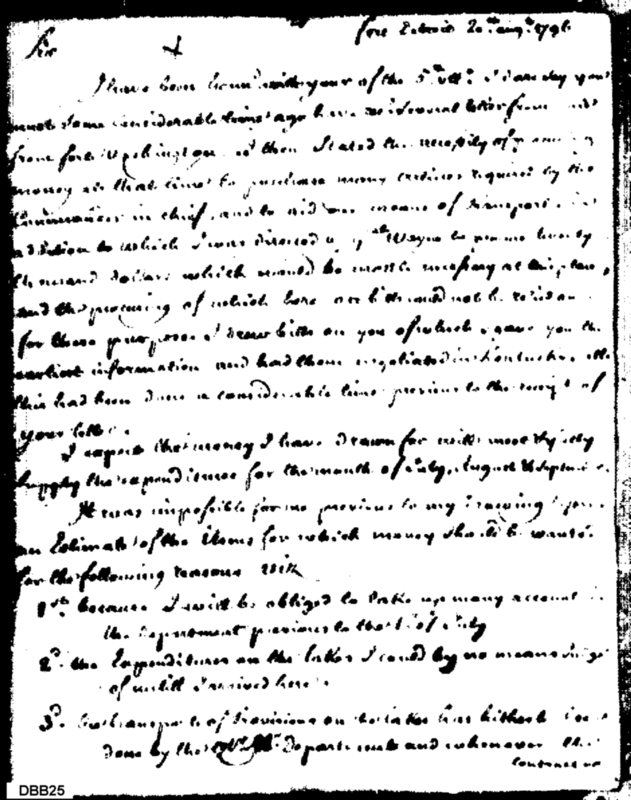 fort Detroit 20th augt 1796
Sir
I have been hond with your of the 5th ulto. I dare say you
must some considerable time ago have received several letter from
from fort Washington I then Stated the necessity of
money at that time to purchase many articles required by the
Commander in chief, and to aid our means of transport
addition to which I was directed by Wayne to twenty
thousand dollars which would be most necessary at this place,
and the procuring of which here or bills could not be
for these purposes I drew bills on you of which I gave you the
earliest information and had them negotiated in Kentucky. all
this had been done a considerable time previous to the receipt of
your letter.
I expect the money I have drawn for will most
supply the expenditures for the month of July, August & Septem
It was impossible for me previous to my drawing
an Estimate of the items for which money should be wanted
for the following reasons Viz
1st. because I will be obliged to take up many account in
the department previous to the 1st of July
2d. the Expenditures on the lakes I could by no means judge
of untill I arrived here.
3d. the transport of Provisions on the lakes has hitherto been
done by the Qr. Mr. departments and whenever the
Contractor
DBB25